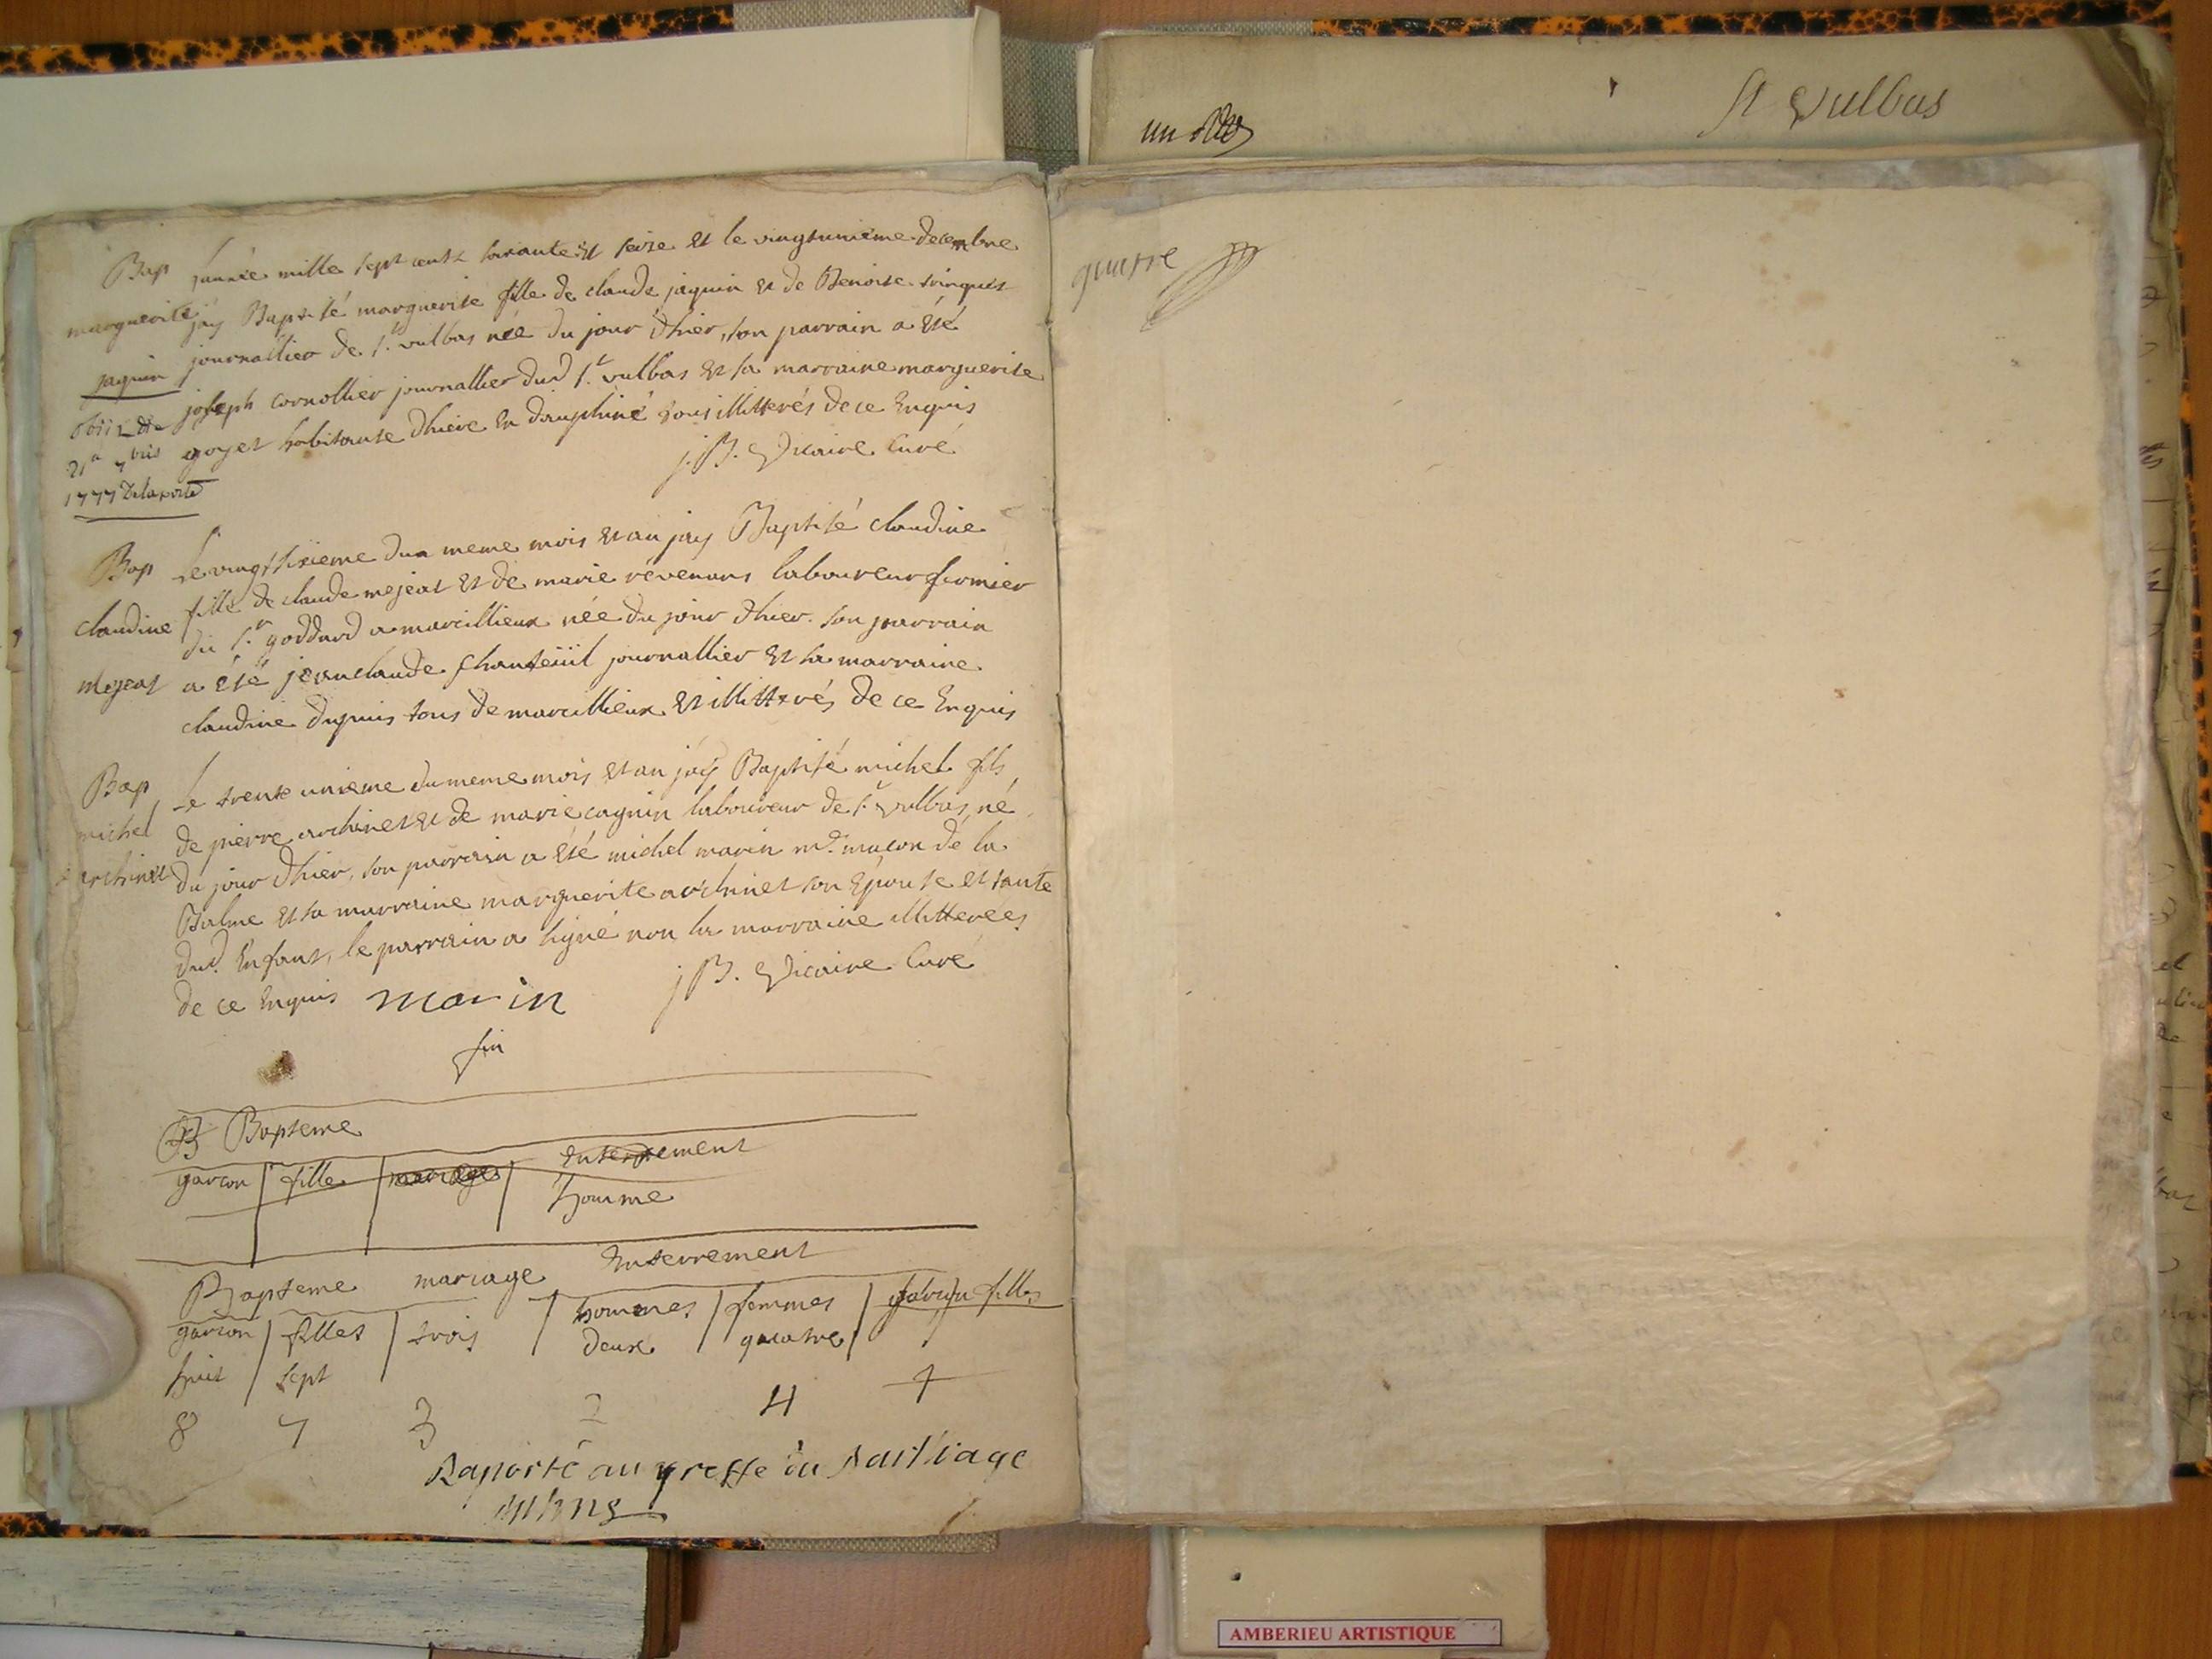 Bap
marguerite
jaquin
obiit die
21a 7bris
1777 Delaporte
Lannée mille sept cents soixante et seize et le vingtunième decembre
jay Baptisé marguerite fille de claude jaquin et de Benoite tringuet
journallier de st. vulbas née du jour d'hier, son parrain a été
joseph cornollier journallier dud st. vulbas et sa marraine marguerite
goyet habitante d'hiere en dauphiné tous illitterés de ce Enquis
j.B. Vicaire Curé
Bap
claudine
mejeat
Le vingtsixieme du meme mois et an jay Baptisé claudine
fille de claude mejeat et de marie revenans laboureur fermier
du sr. goddard a marcillieux née du jour d'hier. son parrain
a été jean claude Chanteüil journallier et sa marraine
claudine dupuis tous de marcillieux et illitterés de ce Enquis
Bap
michel
archinet
Le trente unieme du meme mois et an jaÿ Baptisé michel fils
de pierre archinet et de marie cagnin laboureur de st. vulbas, né
du jour d'hier, son parrain a été michel marin md. maçon de la
Balme et sa marraine marguerite archinet son Epouse et tante
dud. Enfant, le parrain a signé non la marraine illitterées
de ce Enquis marin
jB. Vicaire Curé
fin
B Bapteme
Enterrement
garcon fille mariages homme
Bapteme mariage Enterrement
garcon filles trois hommes femmes garcon filles
huit sept deux quatre
8 7 3 2 4 1
Raporté au greffe du Bailliage
un rolle
St Vulbas
quatre
AMBERIEU ARTISTIQUE